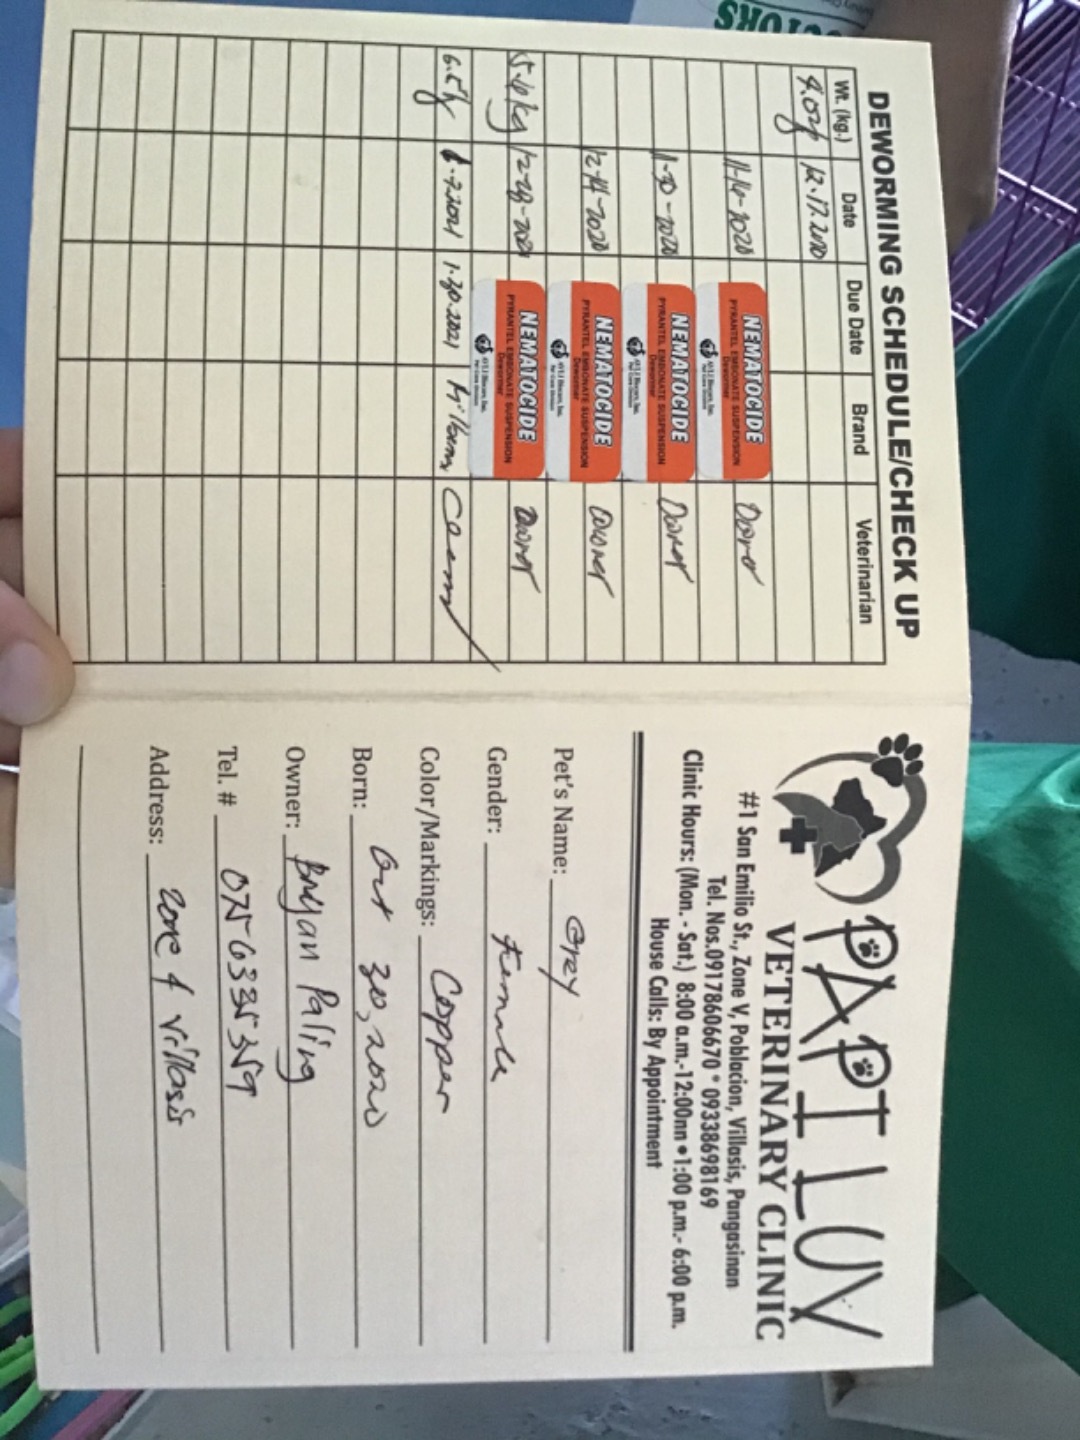 DEWORMING SCHEDULE/CHECK UP
Wt. (kg.) Date Due Date Brand Veterinarian
12.17.2020
11-16-2020 NEMATOCIDE
PYRANTEL EMBONATE SUSPENSION
Dewormer
11-30-2020 NEMATOCIDE
PYRANTEL EMBONATE SUSPENSION
Dewormer
12-14-2020 NEMATOCIDE
PYRANTEL EMBONATE SUSPENSION
Dewormer
12-28-2020 NEMATOCIDE
PYRANTEL EMBONATE SUSPENSION
Dewormer
1.30.2021
PAPI LUV
VETERINARY CLINIC
#1 San Emilio St., Zone V, Poblacion, Villasis, Pangasinan
Tel. Nos.09178606670 * 09338698169
Clinic Hours: (Mon. - Sat.) 8:00 a.m.-12:00nn • 1:00 p.m.- 6:00 p.m.
House Calls: By Appointment
Pet's Name: Grey
Gender: Female
Color/Markings: Copper
Born: Oct 30, 2020
Owner: Bryan Paling
Tel. #
Address: Zone 4 Villasis